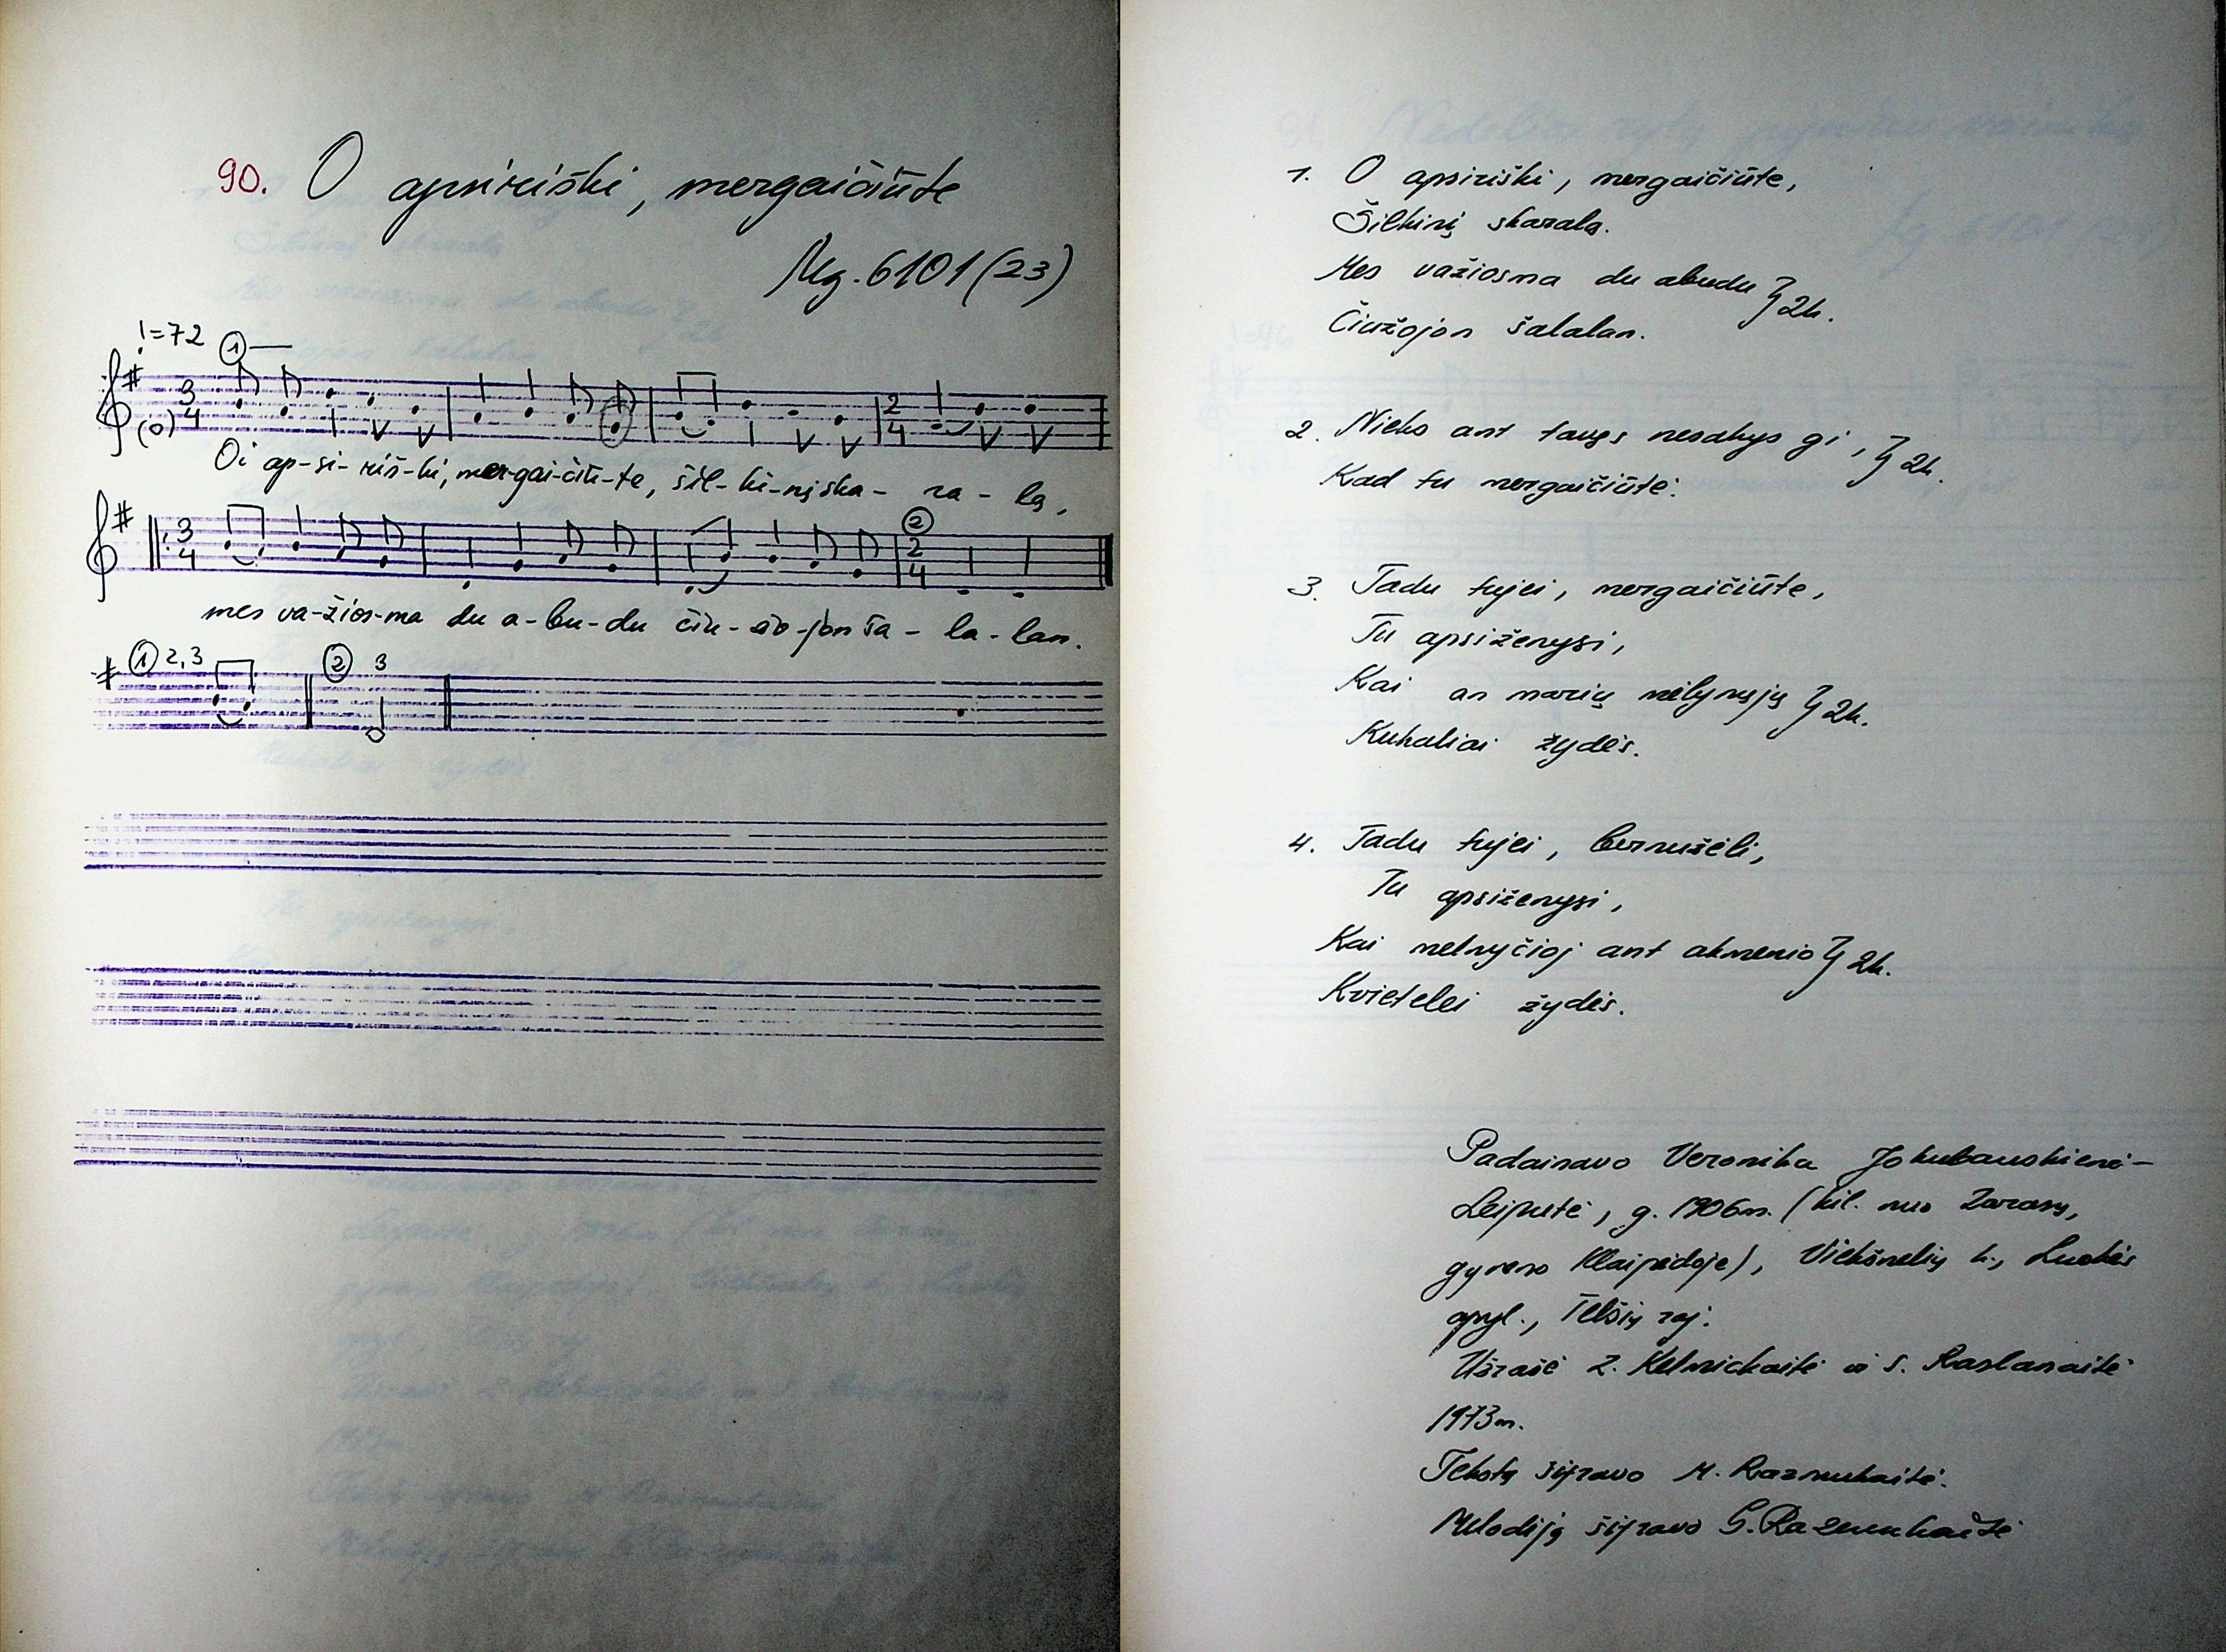 90. O apsiriški, mergaičiūte
Mg. 6101 (23)
♩=72 ①
3/4 2/4
(o)
Oi ap-si-riš-ki, mer-gai-čiū-te, šil-ki-nį ska- ra - lą,
3/4 ② 2/4
mes va-žios-ma du a-bu-du čiu-žo-jon ša - la - lan.
① 2,3 ② 3
1. O apsiriški, mergaičiūte,
Šilkinį skaralą.
Mes važiosma du abudu } 2k.
Čiužojon šalalan.
2. Nieko ant tavęs nesakys gi, } 2k.
Kad tu mergaičiūtė.
3. Tadu tujei, mergaičiūte,
Tu apsiženysi,
Kai an marių mėlynųjų } 2k.
Kukaliai žydės.
4. Tadu tujei, bernužėli,
Tu apsiženysi,
Kai melnyčioj ant akmenio } 2k.
Kvietelei žydės.
Padainavo Veronika Jokubauskienė-
Leiputė, g. 1906m. (kil. nuo Zarasų,
gyveno Klaipėdoje), Viekšnelių k., Luokės
apyl., Telšių raj.
Užrašė Z. Kelmickaitė ir S. Raslanaitė
1973m.
Tekstą šifravo M. Razmukaitė.
Melodiją šifravo G. Razmukaitė